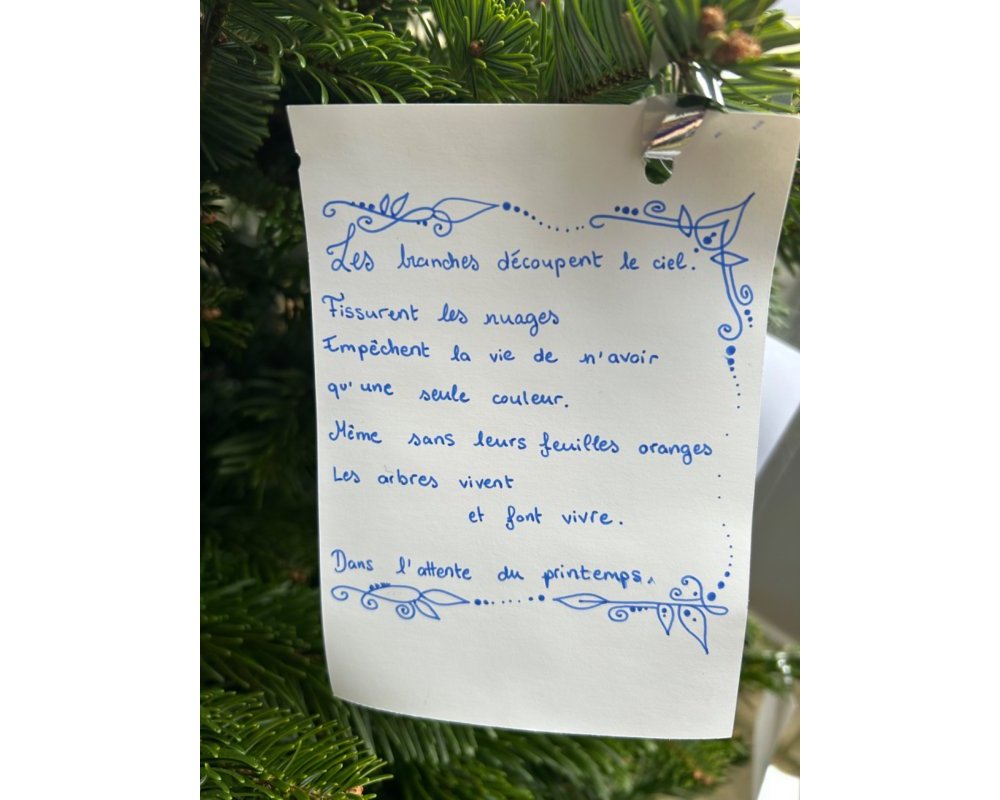 Les branches découpent le ciel.
Fissurent les nuages
Empêchent la vie de n'avoir
qu'une seule couleur.
Même sans leurs feuilles oranges
Les arbres vivent
et font vivre.
Dans l'attente du printemps.